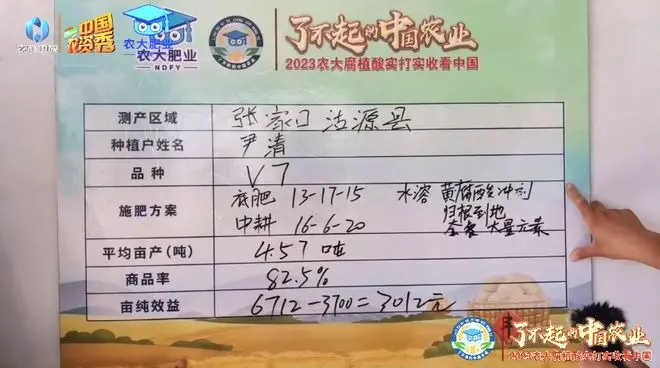 中国
农资秀
农大肥业
农大肥业
NDFY
了不起的中国农业
2023农大腐植酸实打实收看中国
测产区域 张家口 沽源县
种植户姓名 尹清
品种 V7
施肥方案 底肥 13-17-15 水溶 黄腐酸冲剂
归根到地
中耕 16-6-20 套餐 大量元素
平均亩产(吨) 4.57 吨
商品率 82.5%
亩纯效益 6712-3700=3012元
了不起的中国农业
2023农大腐植酸实打实收看中国